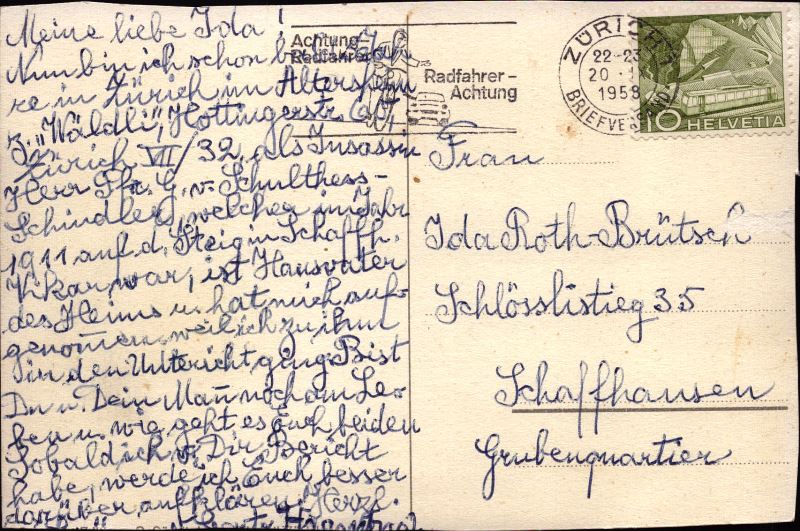 Meine liebe Ida!
Nun bin ich schon bald Jah
re in Zürich im Altersheim
z. "Wäldli", Hottingerstr.
Zürich VII/32, als Insassin
Herr Pfr. G. v. Schulthess-
Schindler, welcher im Jahr
1911 auf d. Steig in Schaffh.
Vikar war, ist Hausvater
des Heims u. hat mich auf-
genommen, weil ich zu ihm
in den Unterricht ging. Bist
Du u. Dein Mann noch am Le-
ben u. wie geht es Euch beiden
Sobald ich v. Dir Bericht
habe, werde ich Euch besser
darüber aufklären. Herzl.
Achtung
Radfahrer
Radfahrer-
Achtung
ZÜRICH 1
22-23
20
1958
BRIEFVERSAND
10 HELVETIA
Frau
Ida Roth-Brütsch
Schlösslistieg 35
Schaffhausen
Grubenquartier